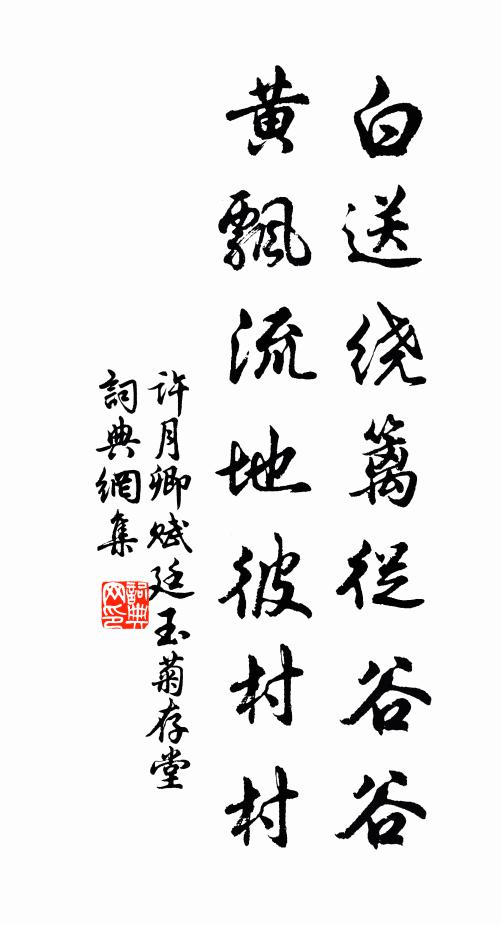 白送绕篱從谷谷
黄飄流地彼村村
许月卿赋廷玉菊存堂
詞典網集
詞典
网印